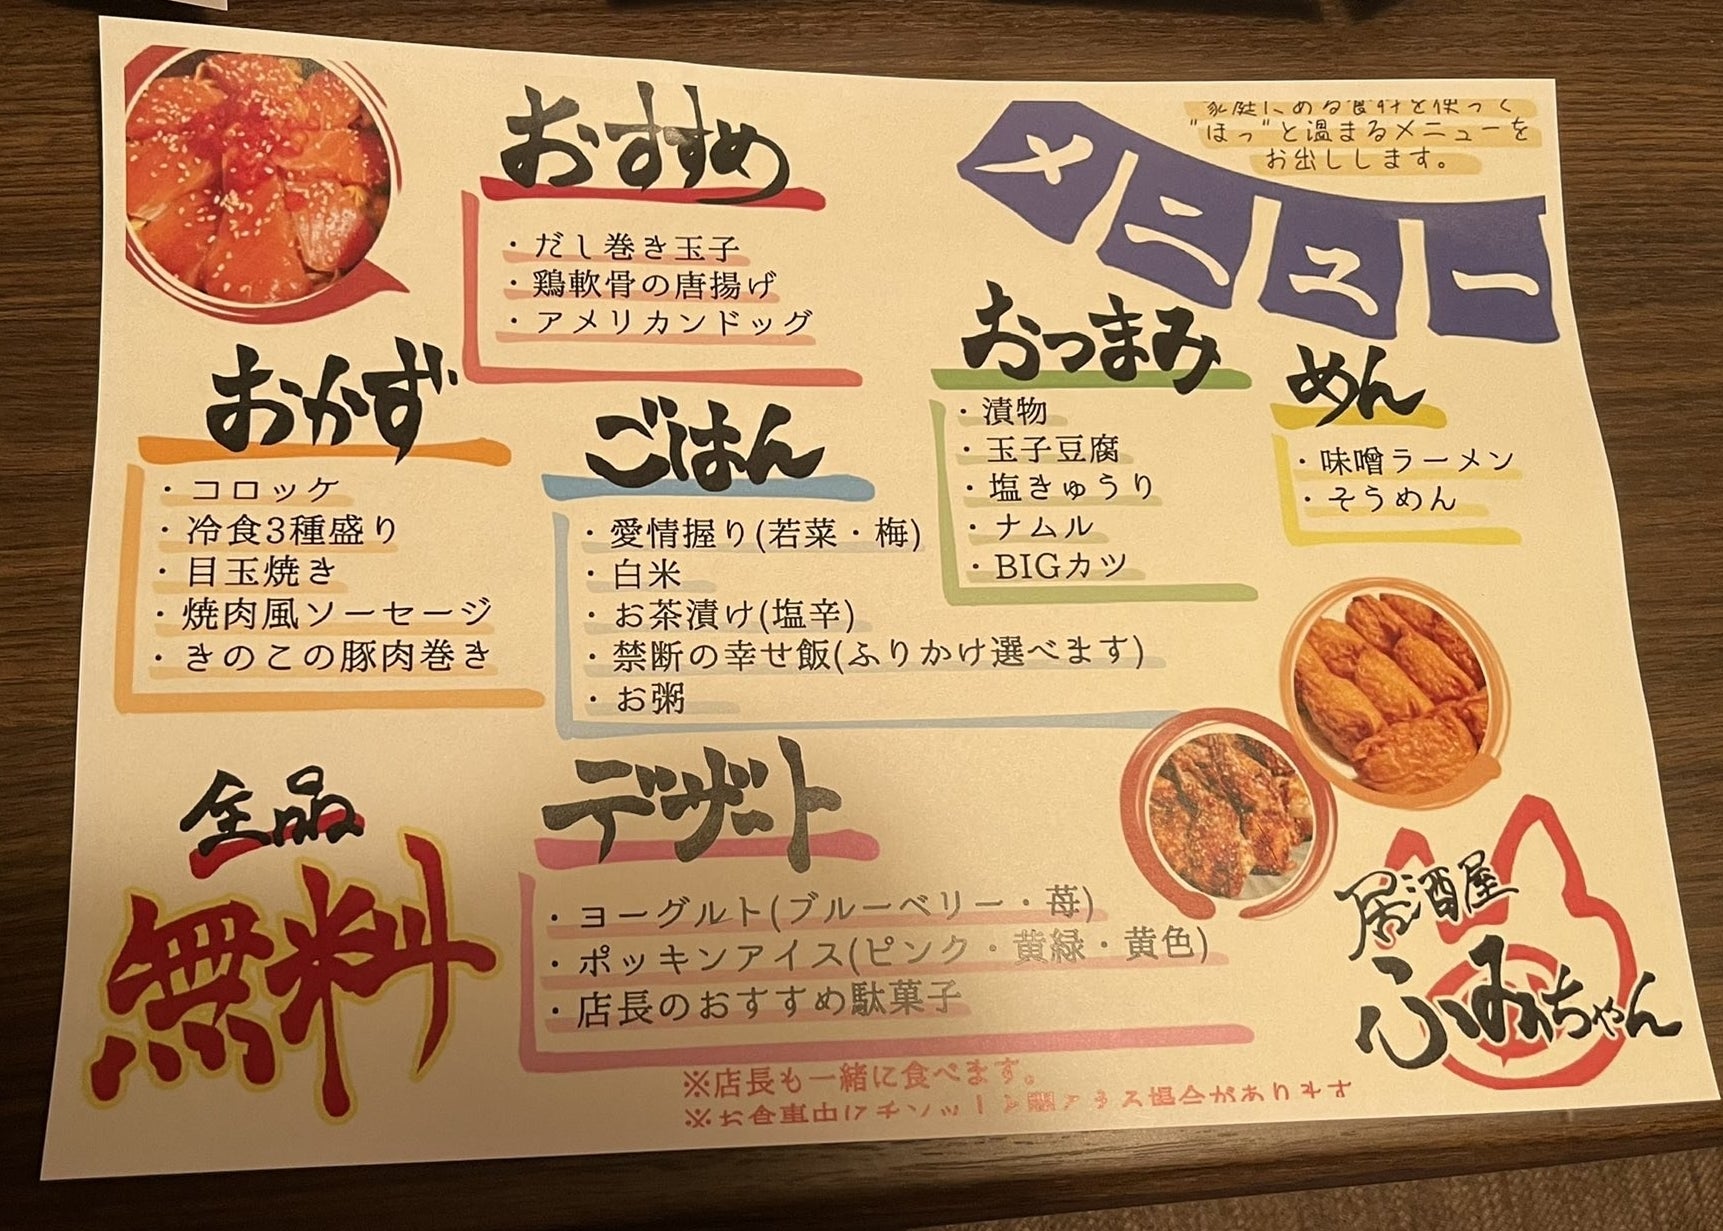 おすすめ
・だし巻き玉子
・鶏軟骨の唐揚げ
・アメリカンドッグ
家庭にある食材を使って
"ほっ"と温まるメニューを
お出しします。
メニュー
おかず
・コロッケ
・冷食3種盛り
・目玉焼き
・焼肉風ソーセージ
・きのこの豚肉巻き
ごはん
・愛情握り(若菜・梅)
・白米
・お茶漬け(塩辛)
・禁断の幸せ飯(ふりかけ選べます)
・お粥
おつまみ
・漬物
・玉子豆腐
・塩きゅうり
・ナムル
・BIGカツ
めん
・味噌ラーメン
・そうめん
全品
無料
デザート
・ヨーグルト(ブルーベリー・苺)
・ポッキンアイス(ピンク・黄緑・黄色)
・店長のおすすめ駄菓子
※店長も一緒に食べます。
※お食事中に
場合があります
居酒屋
ふみちゃん